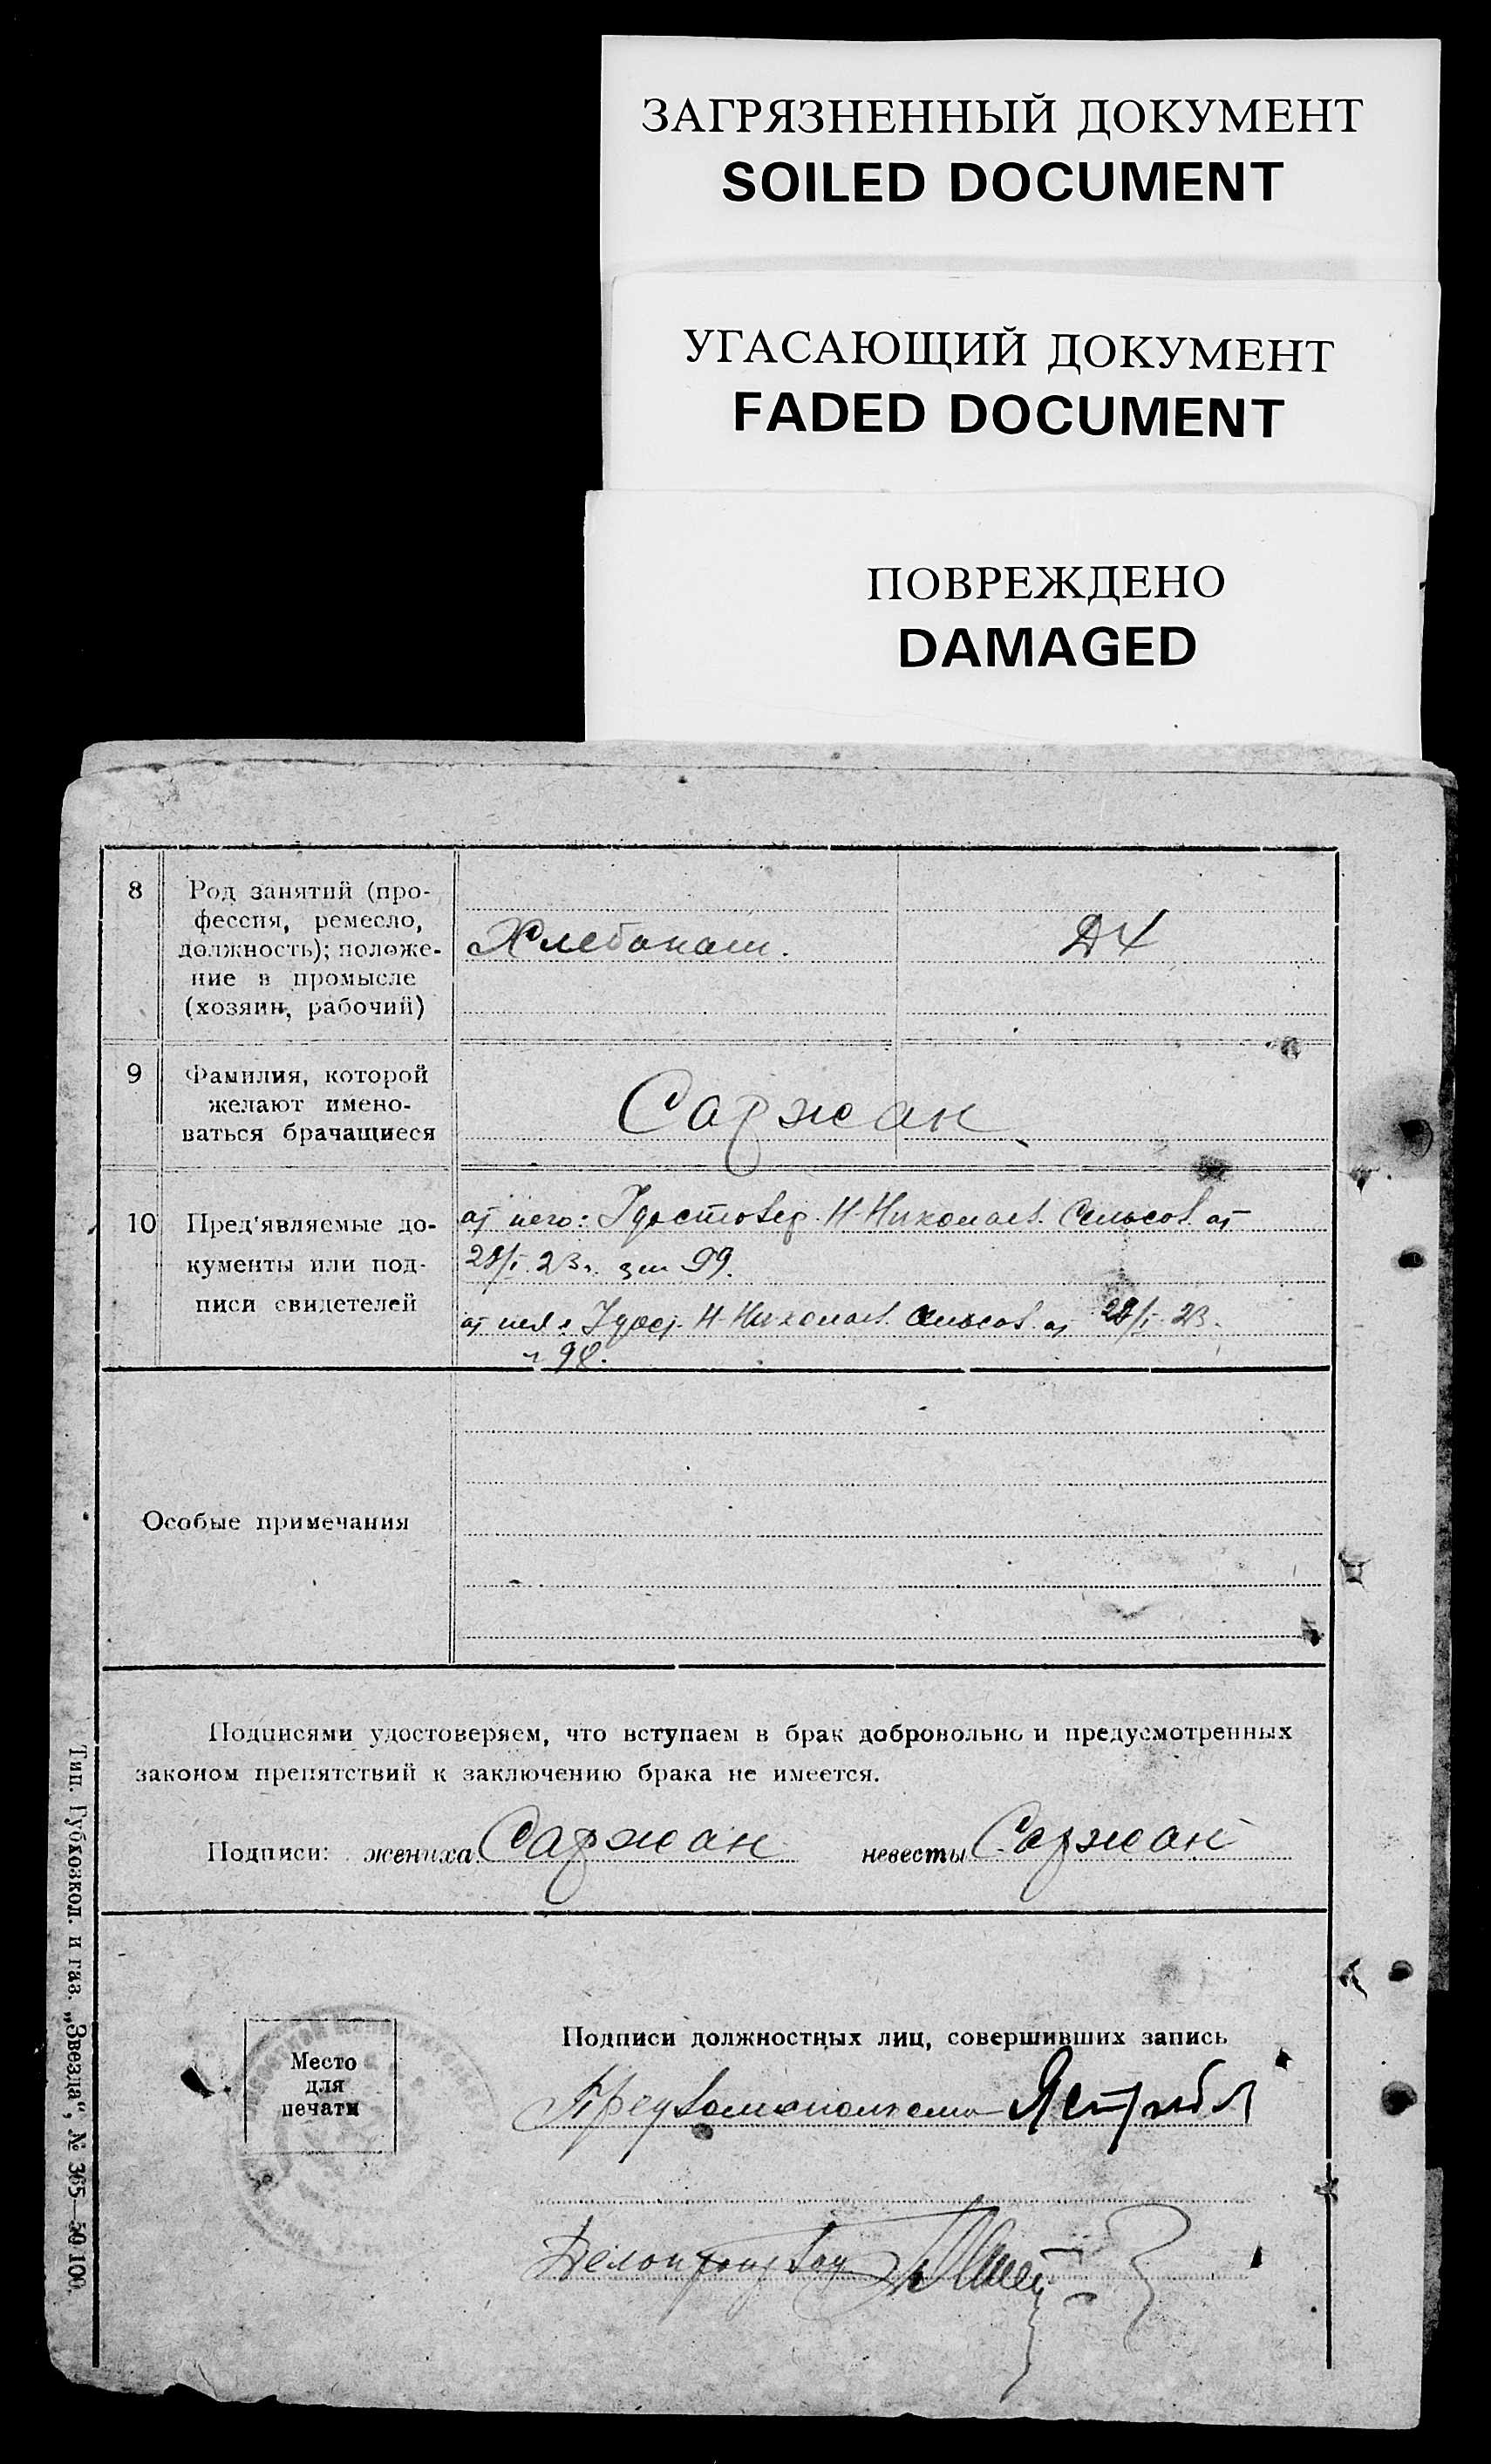 ЗАГРЯЗНЕННЫЙ ДОКУМЕНТ
SOILED DOCUMENT
УГАСАЮЩИЙ ДОКУМЕНТ
FADED DOCUMENT
ПОВРЕЖДЕНО
DAMAGED
8 Род занятий (про-
фессия, ремесло,
должность); положе-
ние в промысле
(хозяин, рабочий)
Хлебопаш. ДХ
9 Фамилия, которой
желают имено-
ваться брачащиеся
Саржан
10 Пред'являемые до-
кументы или под-
писи свидетелей
от него: Удостовер. Н-Николаев. Сельсов. от
28/I 23г. зп 99.
от нея: Удост. Н-Николаев. Сельсов. от 28/I-23.
98.
Особые примечания
Подписями удостоверяем, что вступаем в брак добровольно и предусмотренных
законом препятствий к заключению брака не имеется.
Подписи: жениха Саржан невесты Саржан
Место
для
печати
Подписи должностных лиц, совершивших запись
Пред Волисполкома
Делопроизвод
Тип. Губховкол. и газ. „Звезда", № 365—50 100.